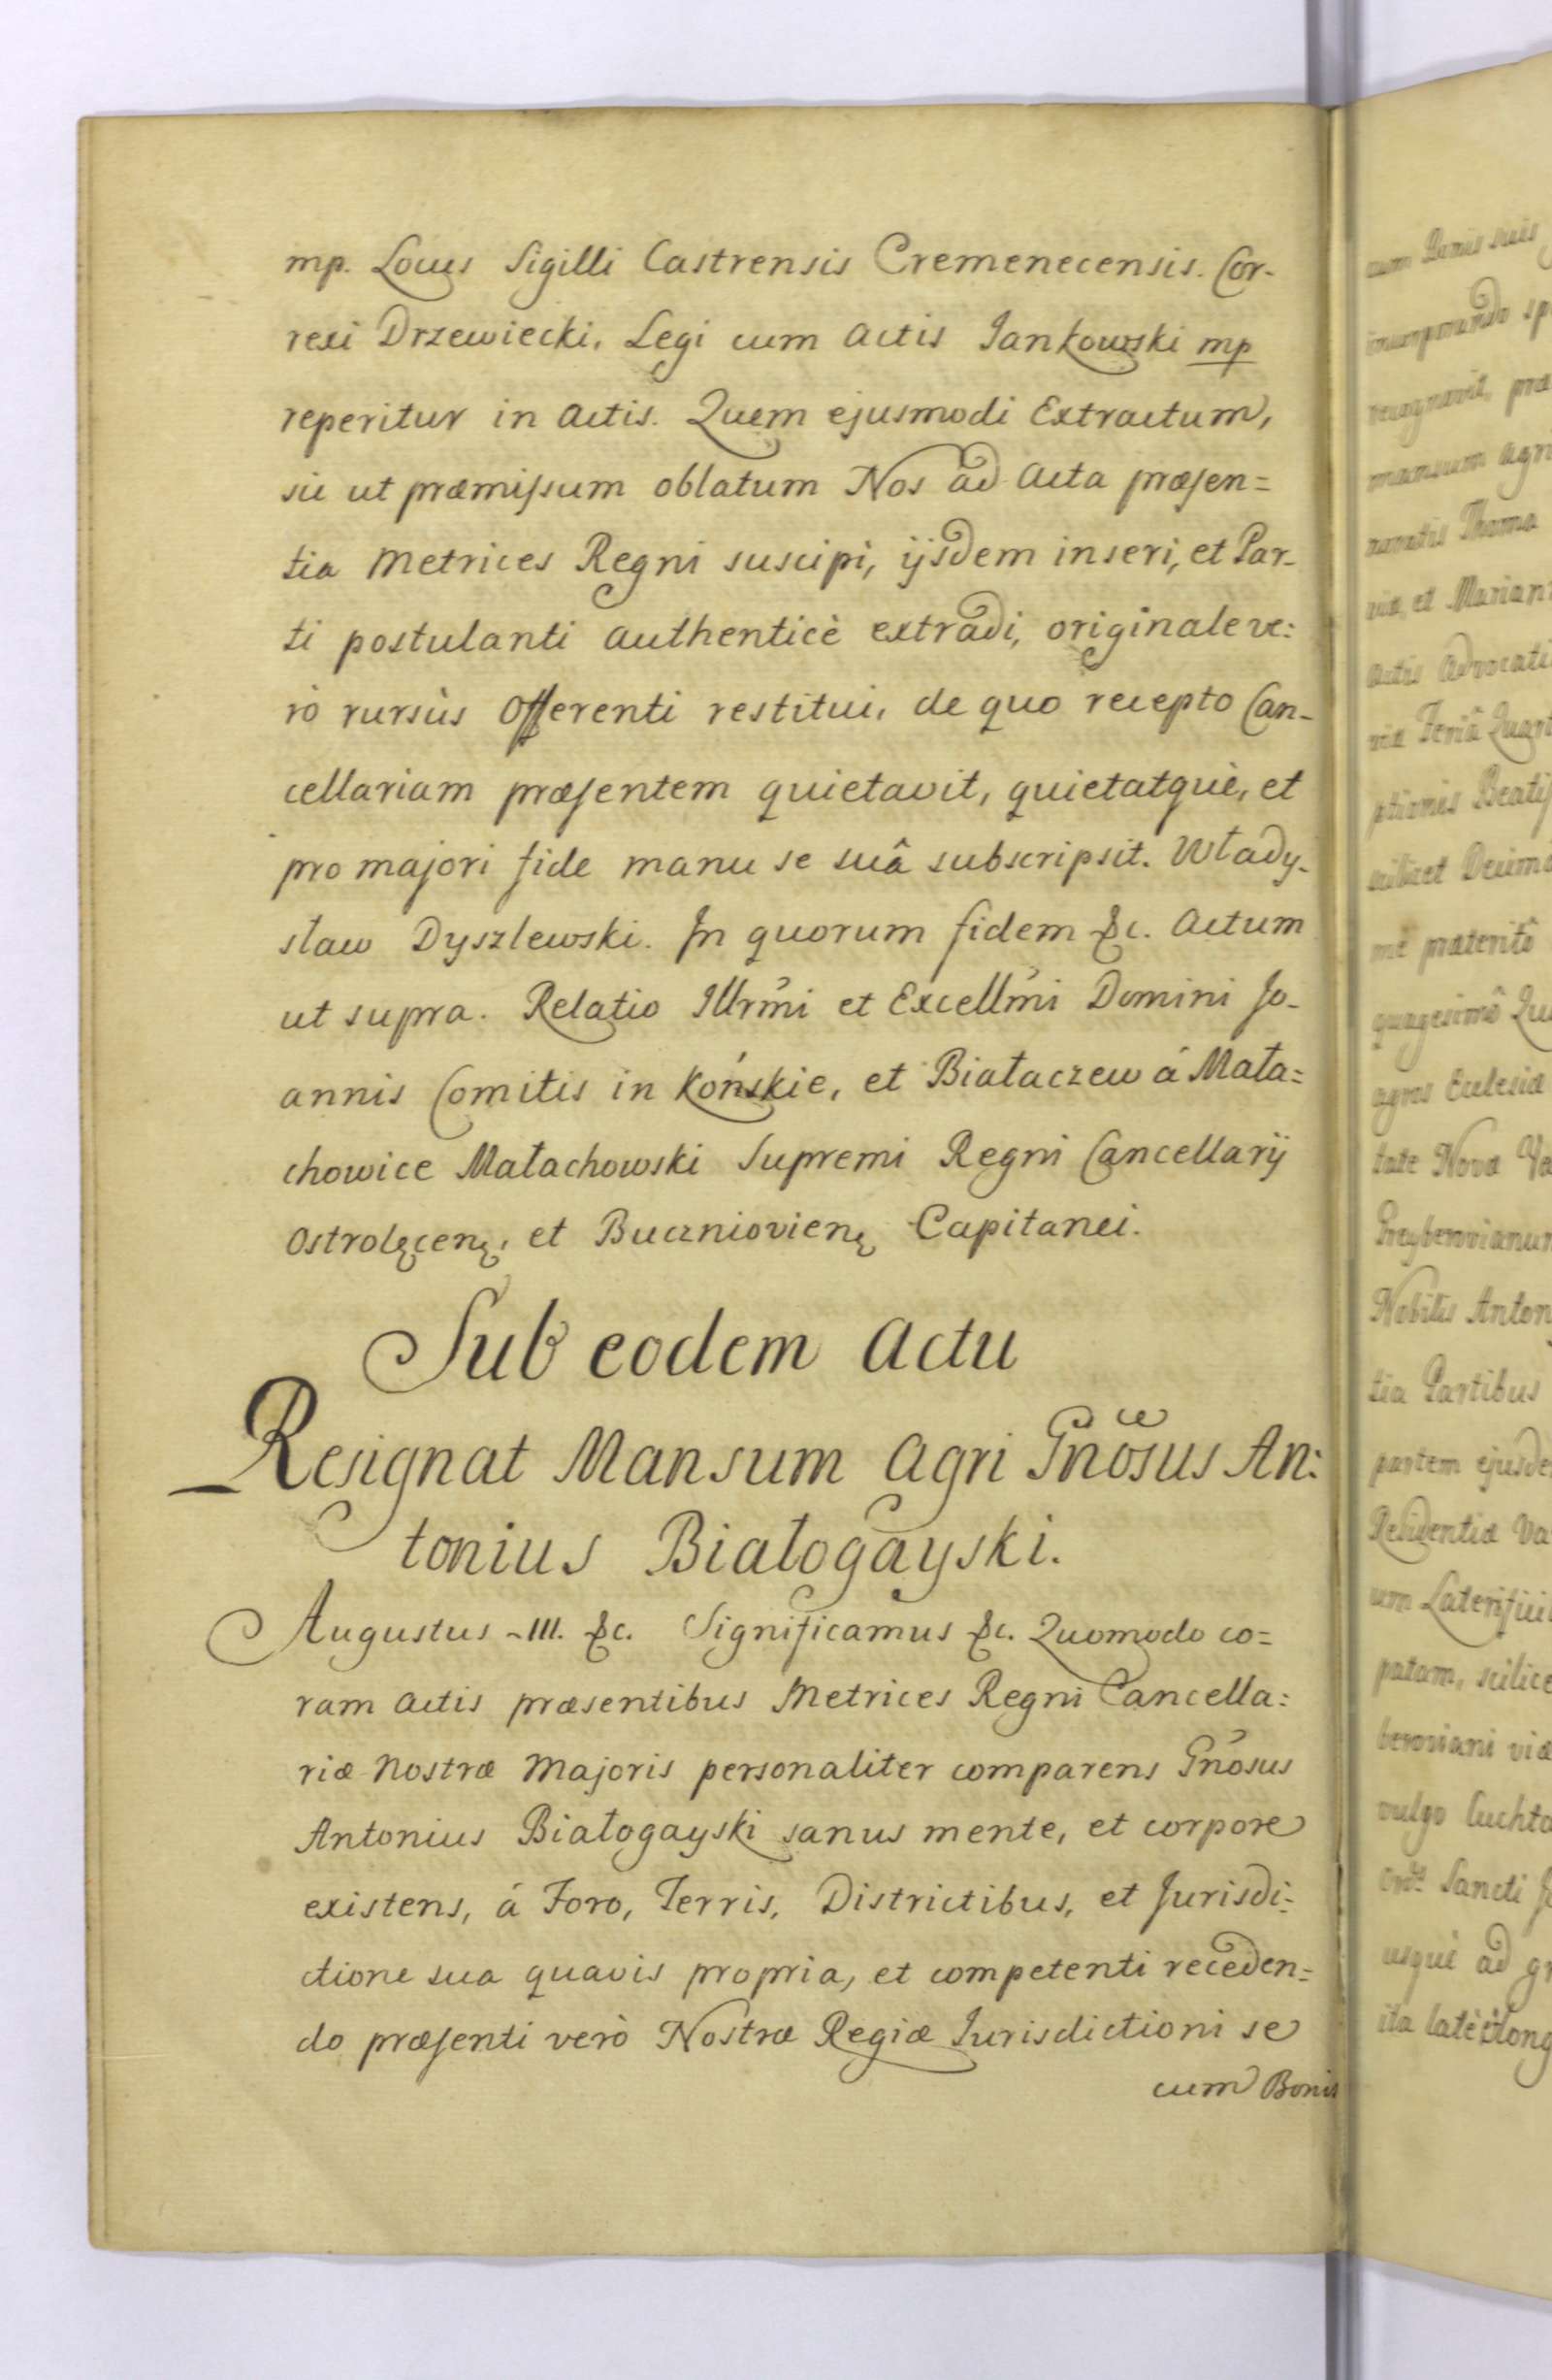 mp. Locus Sigilli Castrensis Cremenecensis. Cor-
rexi Drzewiecki, Legi cum Actis Jankowski mp
reperitur in Actis. Quem ejusmodi Extractum,
sic ut præmissum oblatum Nos ad Acta præsen=
tia Metrices Regni suscipi, ijsdem inseri, et Par-
ti postulanti authenticè extradi, originale ve:
rò rursùs Offerenti restitui, de quo recepto Can-
cellariam præsentem quietavit, quietatquè, et
pro majori fide manu se suâ subscripsit. Włady-
sław Dyszlewski. In quorum fidem &c. Actum
ut supra. Relatio Illrm̃i et Excellm̃i Domini Jo-
annis Comitis in Końskie, et Białaczew á Mała=
chowice Małachowski Supremi Regni Cancellarij
Ostrolęcenę, et Buczniovienę Capitanei.
Sub eodem Actu
Resignat Mansum Agri Gñosus An:
tonius Białogayski.
Augustus III. &c. Significamus &c. Quomodo co=
ram Actis præsentibus Metrices Regni Cancella:
riæ Nostræ Majoris personaliter comparens Gñosus
Antonius Białogayski sanus mente, et corpore
existens, á Foro, Terris, Districtibus, et Jurisdi:
ctione sua quavis propria, et competenti receden=
do præsenti verò Nostræ Regiæ Jurisdictioni se
cum Bonis
recognavit, præ
mansum Agri
Thoma
viæ, et Marian
Actis Advocati
viæ Feriâ Quart
ptionis Beatis
scilicet Decimâ
me præteritô
quagesimô Qu
agros Ecclesiæ
tate Nova Va
Nobilis Anton
tia Partibus
partem ejusde
Residentiæ Va
patam, scilice
beroviani viæ
vulgo
Ordis Sancti J
usquè ad gr
ita latè et long